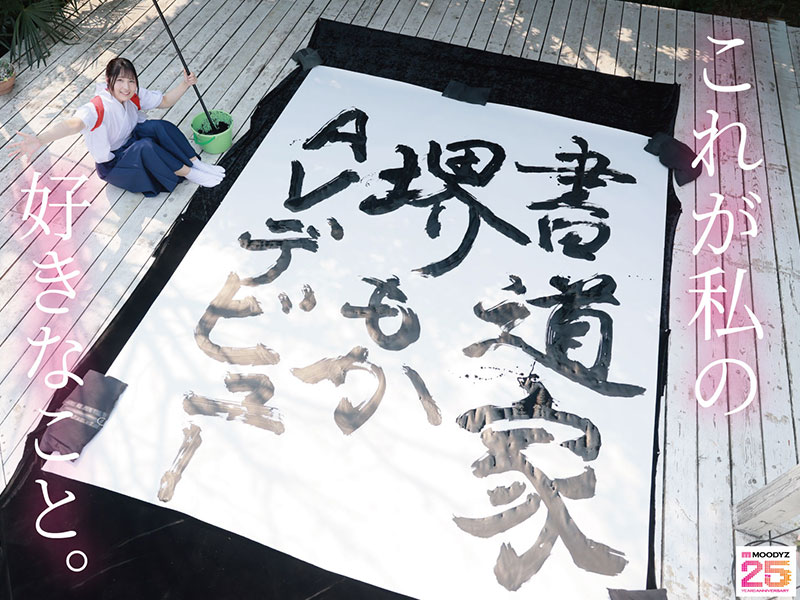 これが私の
好きなこと。
書道家
堺もか
AVデビュー
MOODYZ
25
YEARS ANNIVERSARY